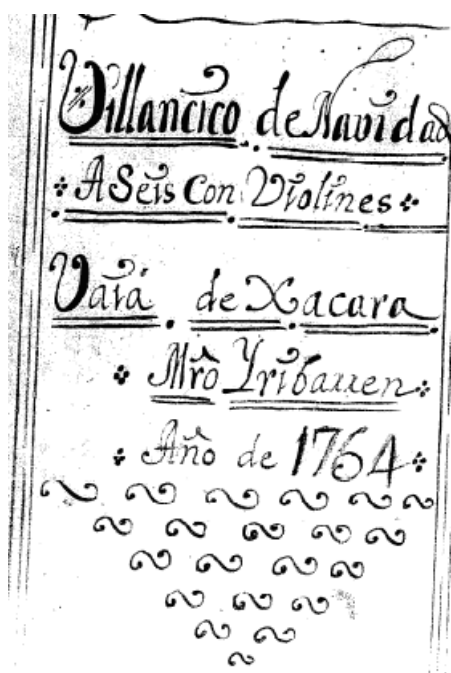 Villancico de Navidad
A Seis Con Violines
Vaia de Xacara
Mrõ Yribarren
Año de 1764